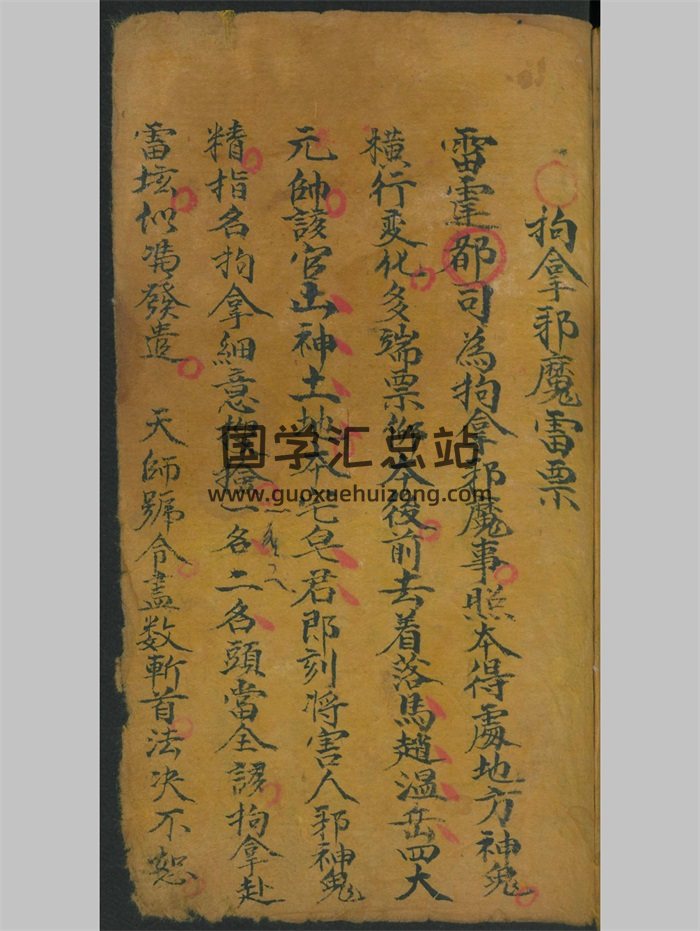 拘拿邪魔雷票
雷霆都司為拘拿邪魔事照本得處地方神鬼
橫行变化多端票仰本後前去着落馬趙温岳四大
元帥該官山神土地本宅皂君即刻将害人邪神鬼
精指名拘拿細意一名二名頭當全謬拘拿赴
雷坛似憑發遣 天師號令盡数斬首法决不恕
国学汇总站
www.guoxuehuizong.com